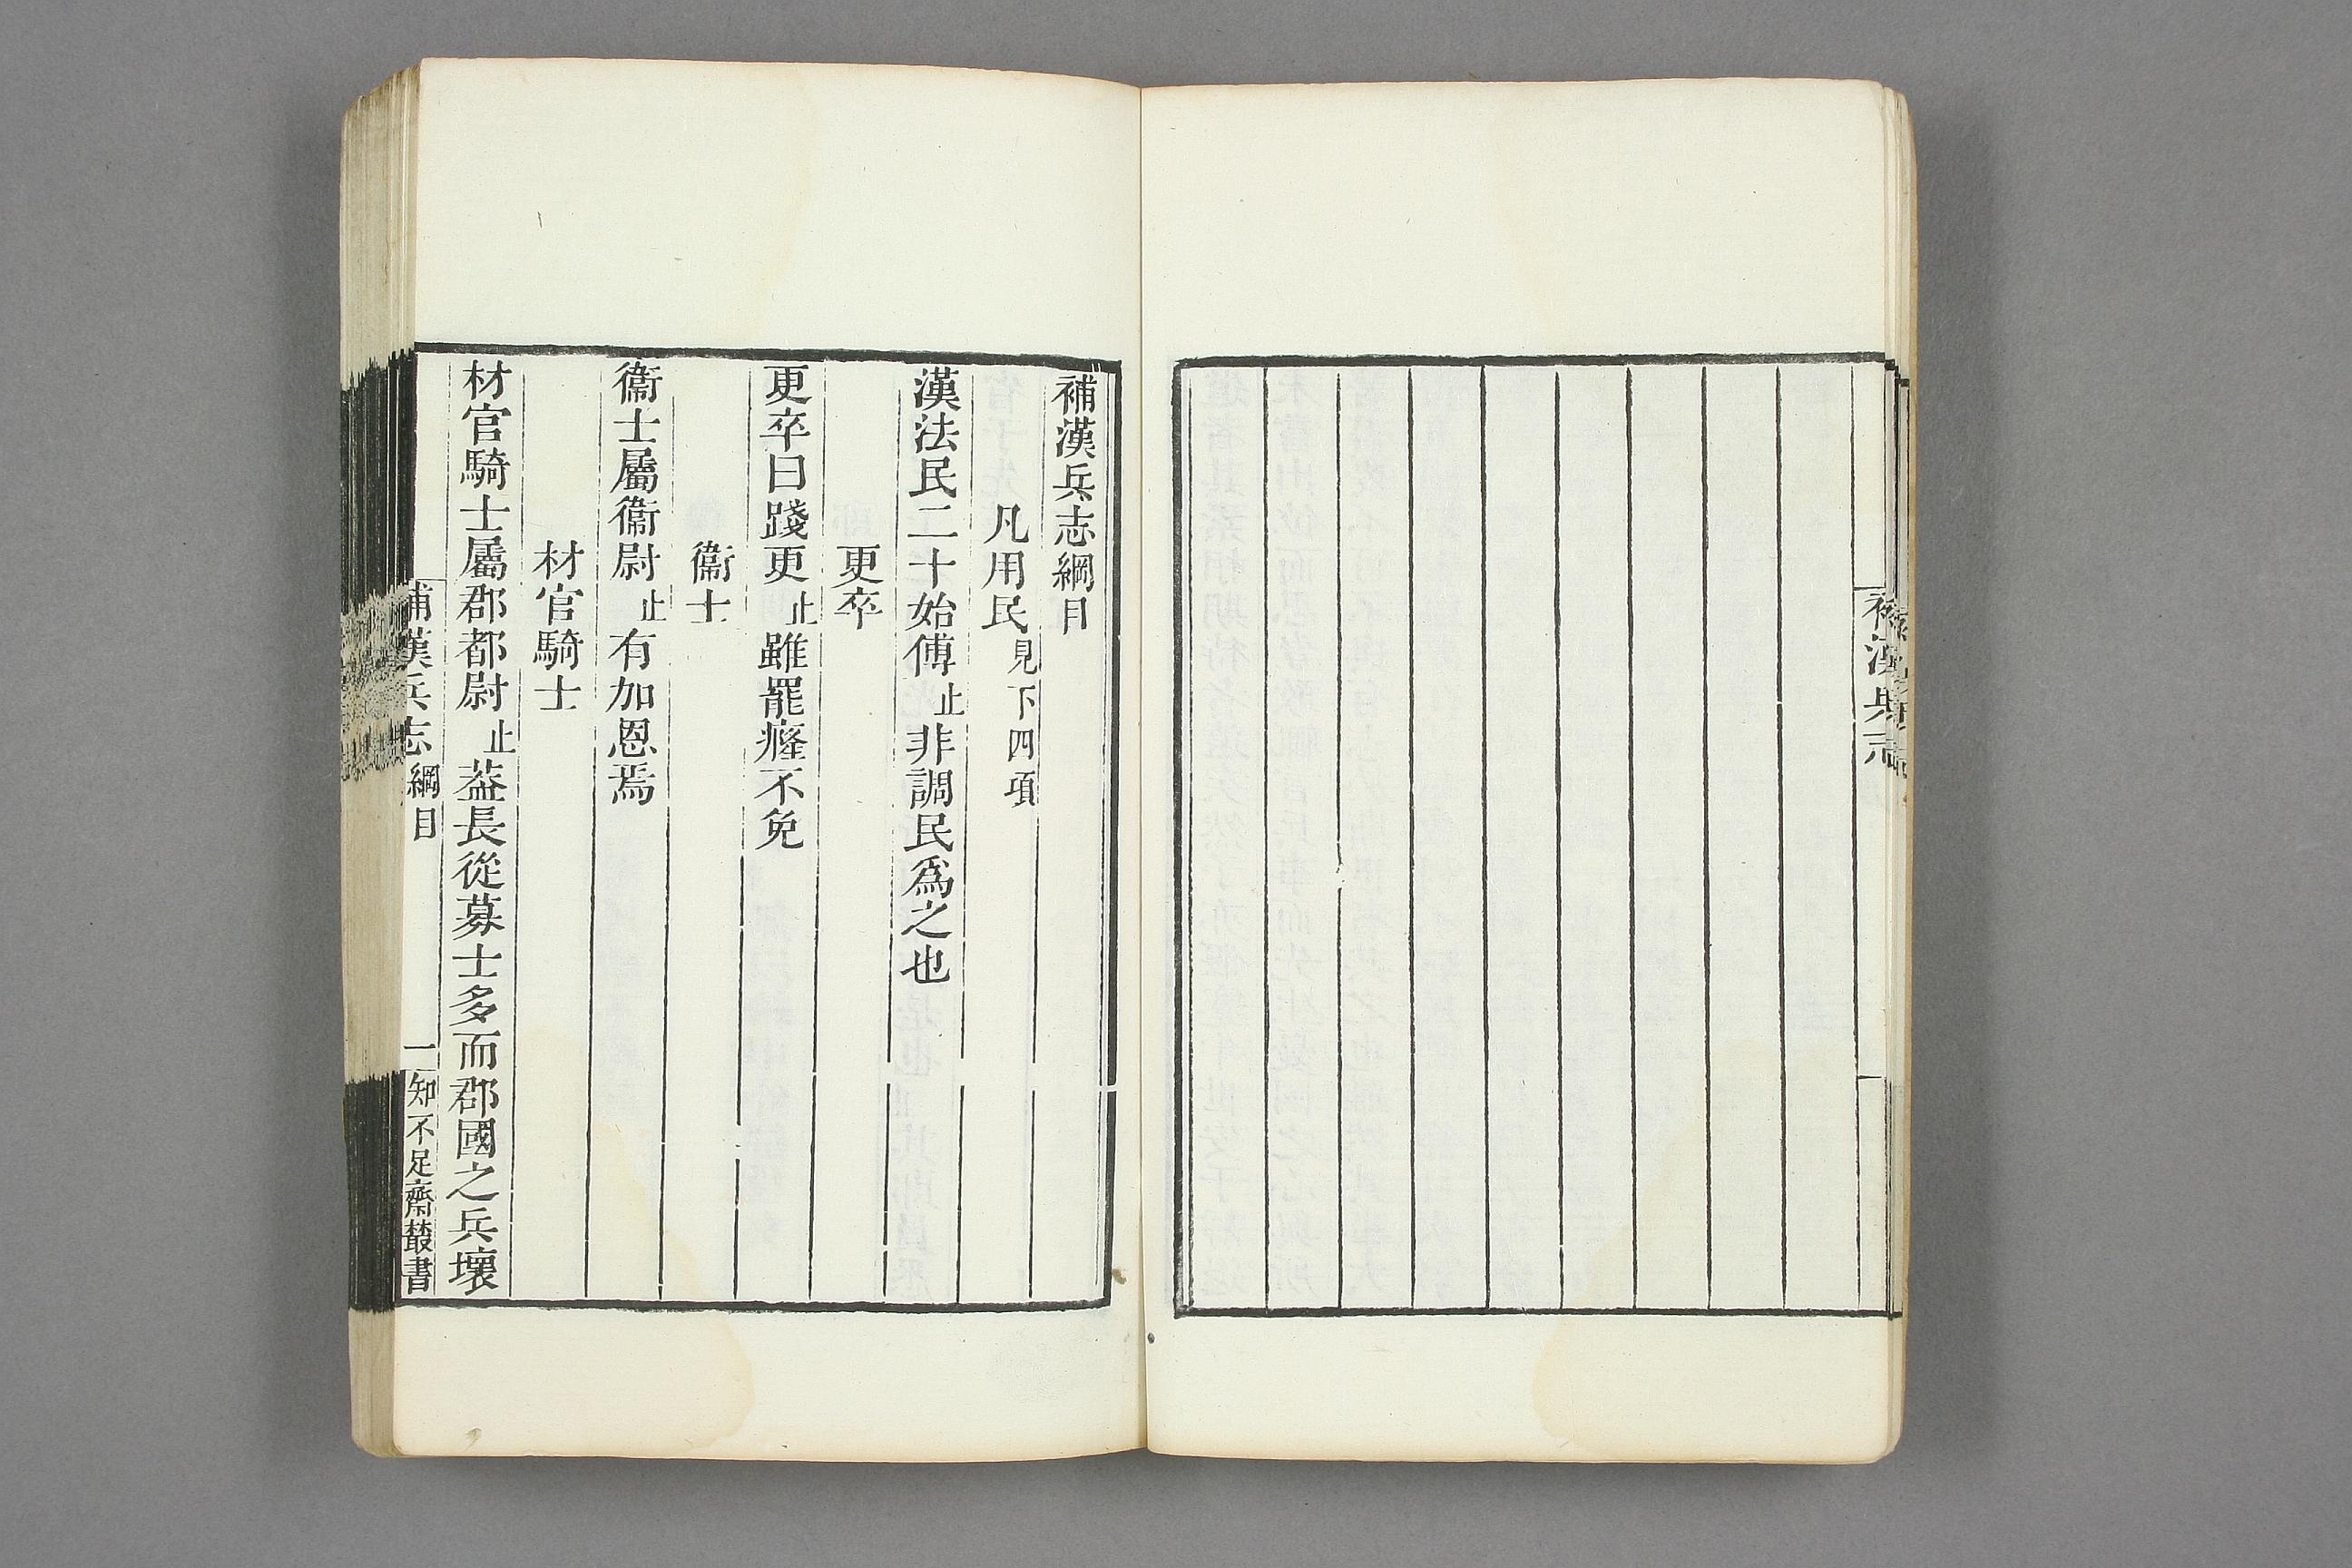 補漢兵志
補漢兵志綱目
凡用民見下四項
漢法民二十始傅止非調民爲之也
更卒
更卒曰踐更止雖罷癃不免
衞士
衞士屬衞尉止有加恩焉
材官騎士
材官騎士屬郡都尉止葢長從募士多而郡國之兵壞
補漢兵志 綱目 一 知不足齋叢書